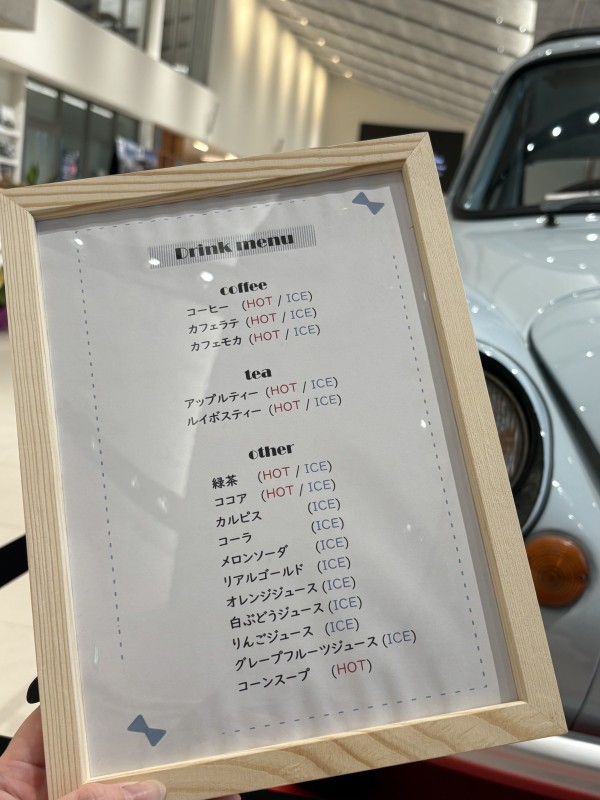 Drink menu
coffee
コーヒー (HOT / ICE)
カフェラテ (HOT / ICE)
カフェモカ (HOT / ICE)
tea
アップルティー (HOT / ICE)
ルイボスティー (HOT / ICE)
other
緑茶 (HOT / ICE)
ココア (HOT / ICE)
カルピス (ICE)
コーラ (ICE)
メロンソーダ (ICE)
リアルゴールド (ICE)
オレンジジュース (ICE)
白ぶどうジュース (ICE)
りんごジュース (ICE)
グレープフルーツジュース (ICE)
コーンスープ (HOT)